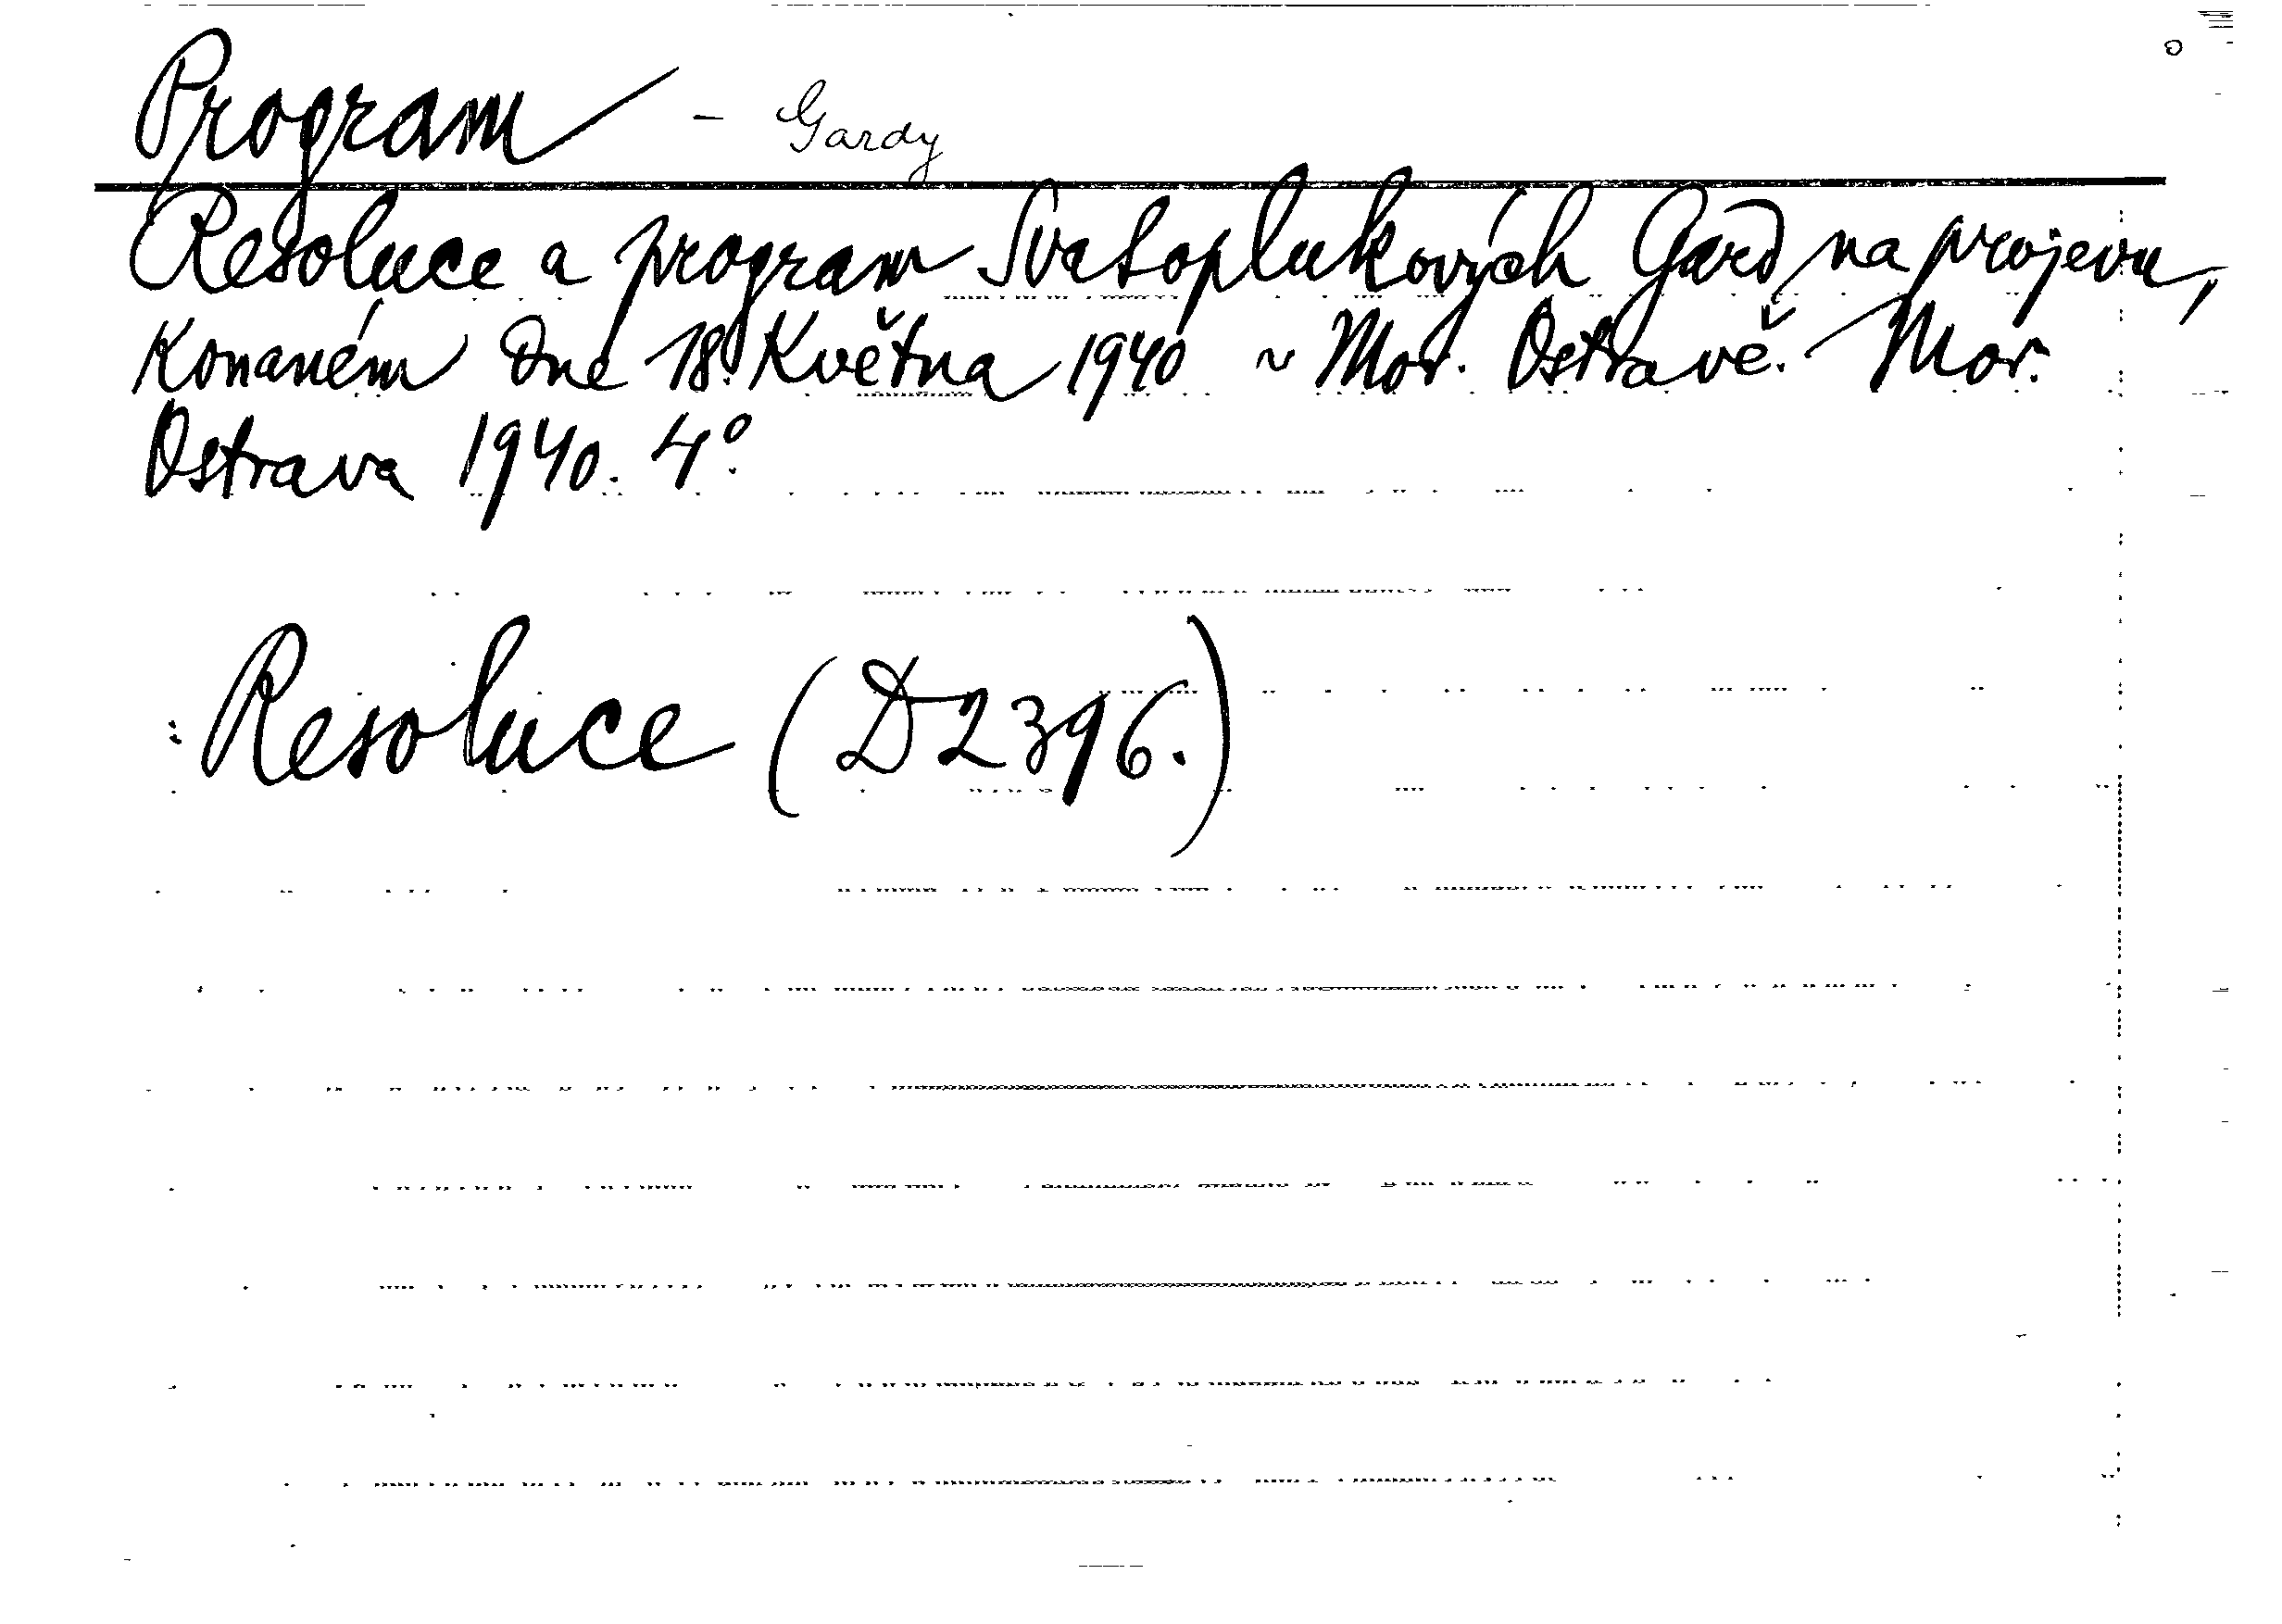 Program - Gardy
Resoluce a program Svatoplukových Gard na projevu,
konaném dne 18. května 1940 v Mor. Ostravě. Mor.
Ostrava 1940. 4°.
Resoluce (D2396.)